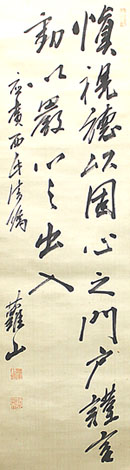 慎視聴以固心之門戸謹言
動以厳心之出入
応廣西氏清嘱
蘿山